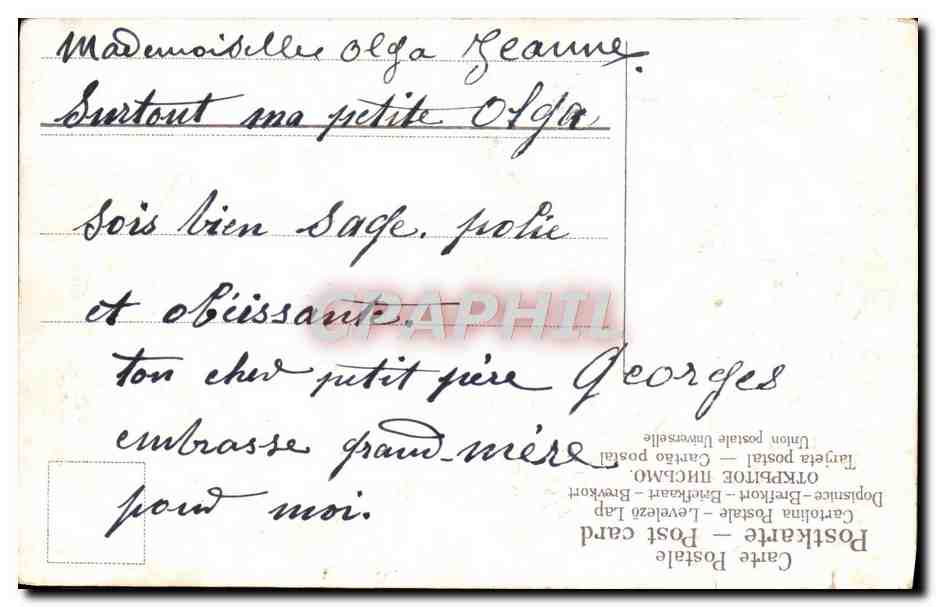 Mademoiselle Olga Jeanne.
Surtout ma petite Olga
sois bien sage. polie
et obéissante.
ton cher petit père Georges
embrasse grand-mère
pour moi.
CPAPHIL
Carte Postale
Postkarte – Post card
Cartolina Postale – Levelező Lap
Dopisnice – Brefkort – Briefkaart – Brevkort
ОТКРЫТОЕ ПИСЬМО.
Tarjeta postal – Cartão postal
Union postale Universelle